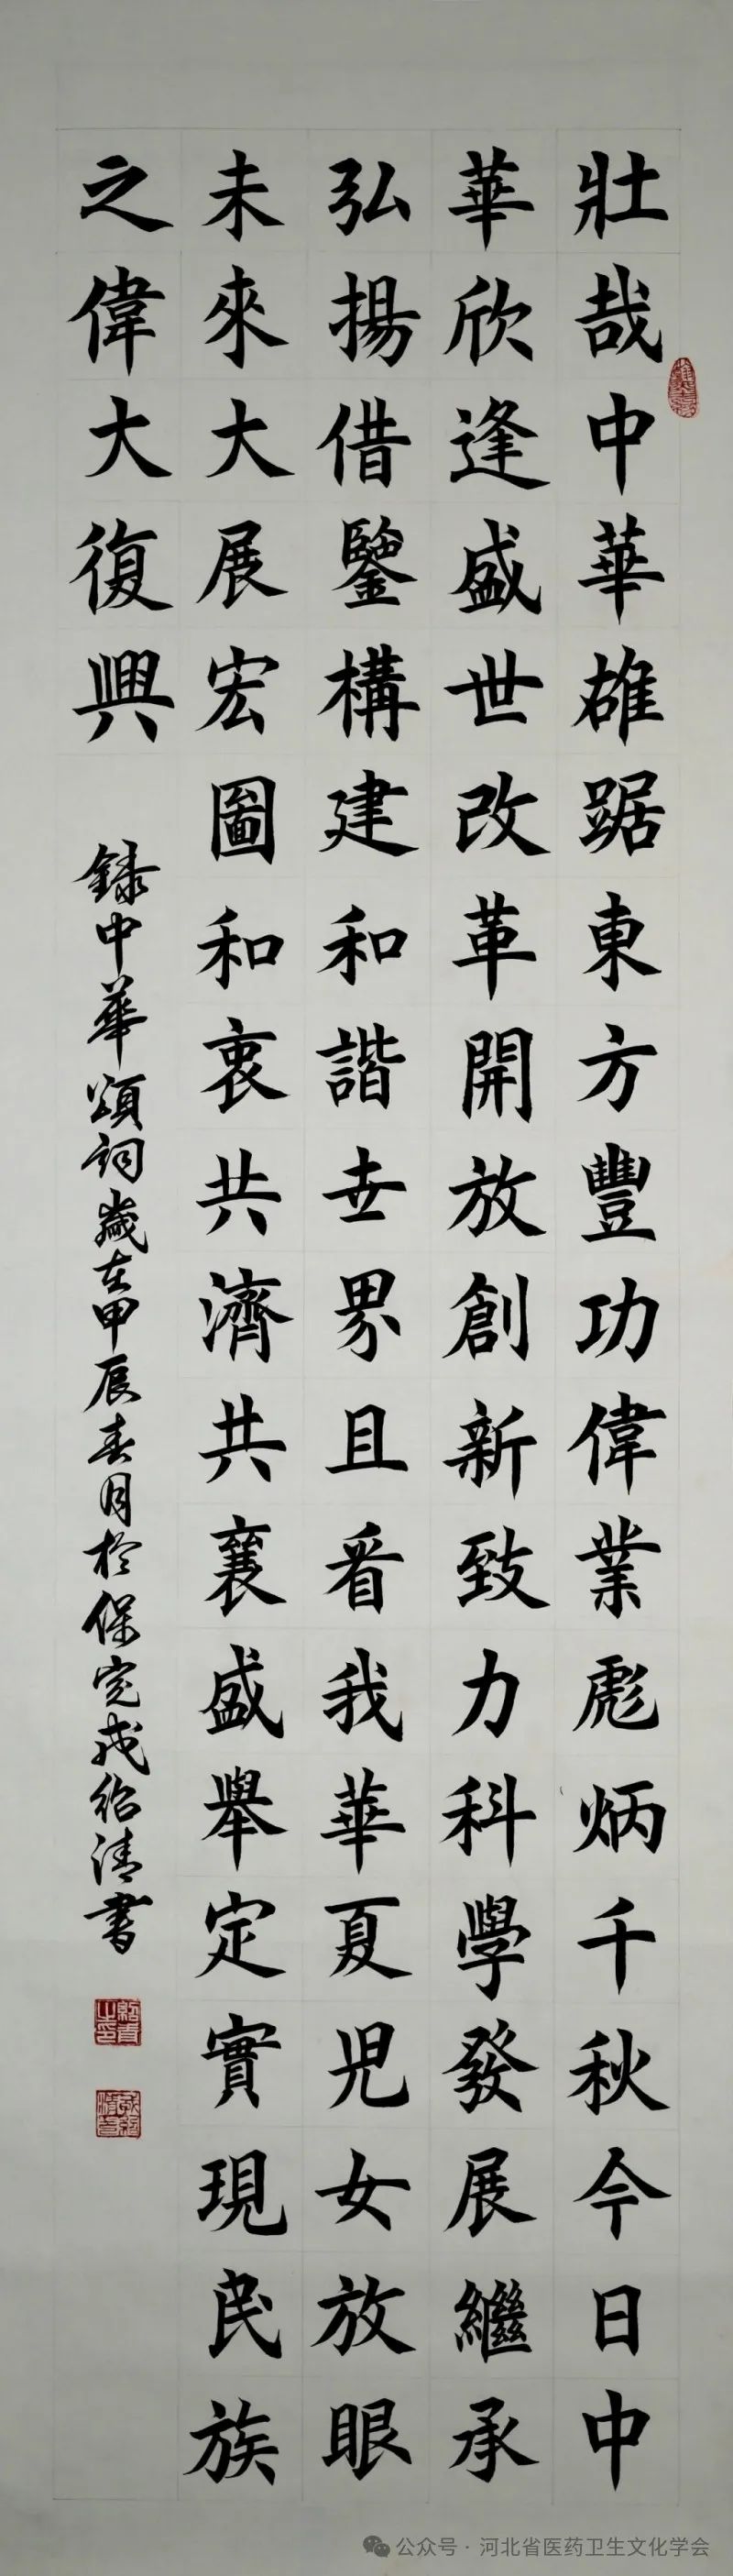 壯哉中華雄踞東方豐功偉業彪炳千秋今日中
華欣逢盛世改革開放創新致力科學發展繼承
弘揚借鑒構建和諧世界且看我華夏児女放眼
未來大展宏圖和衷共濟共襄盛舉定實現民族
之偉大復興
録中華頌詞歲在甲辰春月於保定戎紹清書
公众号·河北省医药卫生文化学会